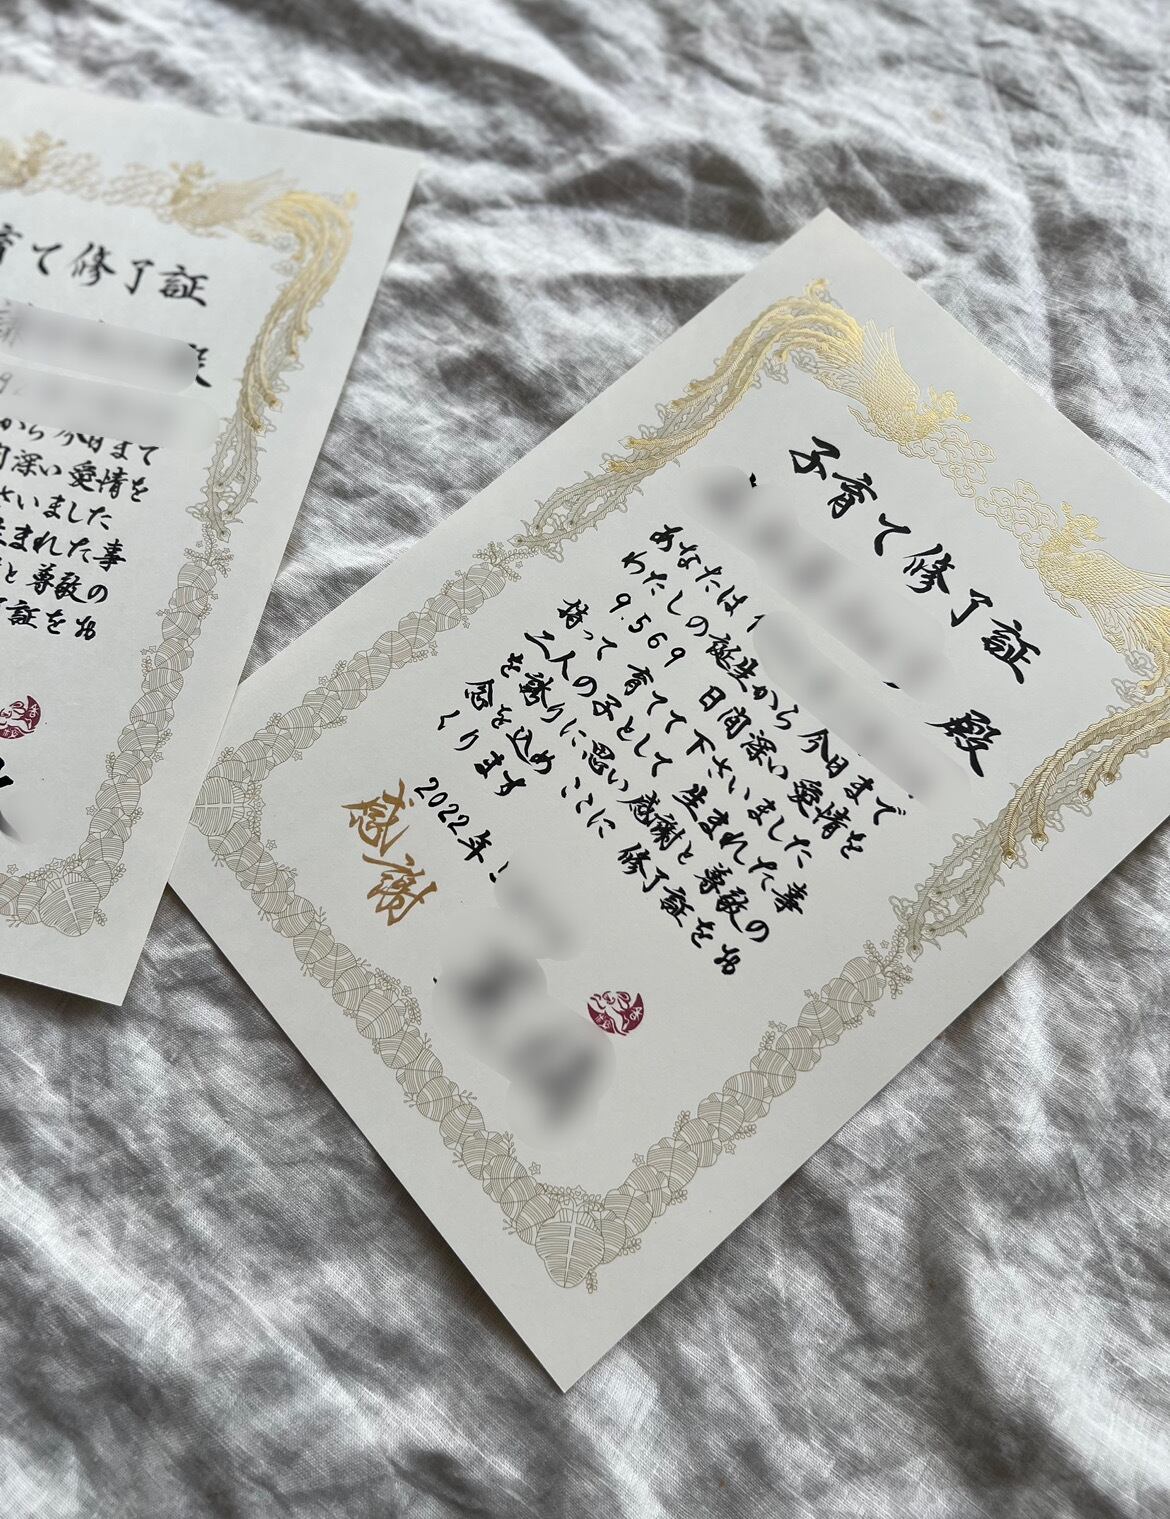 育て修了証
殿
から今日まで
間深い愛情を
さいました
生まれた事
と尊敬の
了証をお
子育て修了証
殿
あなたは1
わたしの誕生から今日まで
9.569 日間深い愛情を
持って育てて下さいました
二人の子として生まれた事
を誇りに思い感謝と尊敬の
念を込め ここに修了証をお
くります
2022年
感謝